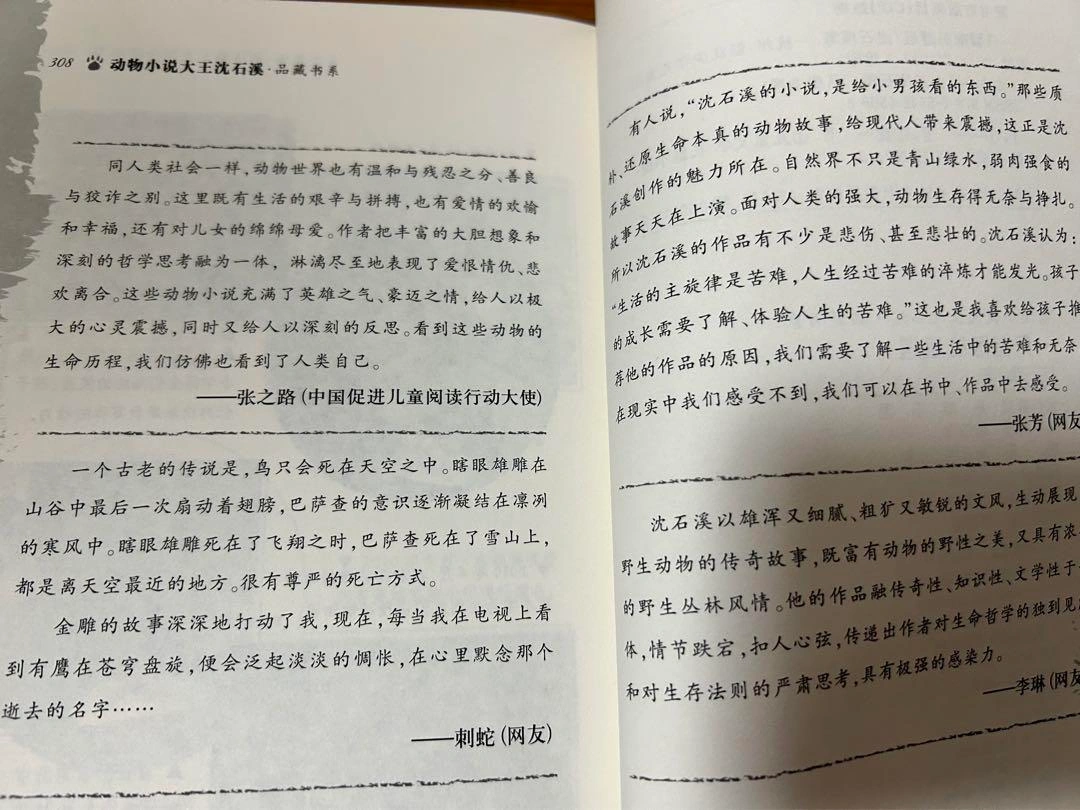 308 动物小说大王沈石溪·品藏书系
同人类社会一样，动物世界也有温和与残忍之分、善良
与狡诈之别。这里既有生活的艰辛与拼搏，也有爱情的欢愉
和幸福，还有对儿女的绵绵母爱。作者把丰富的大胆想象和
深刻的哲学思考融为一体，淋漓尽至地表现了爱恨情仇、悲
欢离合。这些动物小说充满了英雄之气、豪迈之情，给人以极
大的心灵震撼，同时又给人以深刻的反思。看到这些动物的
生命历程，我们仿佛也看到了人类自己。
——张之路（中国促进儿童阅读行动大使）
一个古老的传说是，鸟只会死在天空之中。瞎眼雄雕在
山谷中最后一次扇动着翅膀，巴萨查的意识逐渐凝结在凛冽
的寒风中。瞎眼雄雕死在了飞翔之时，巴萨查死在了雪山上，
都是离天空最近的地方。很有尊严的死亡方式。
金雕的故事深深地打动了我，现在，每当我在电视上看
到有鹰在苍穹盘旋，便会泛起淡淡的惆怅，在心里默念那个
逝去的名字……
——刺蛇（网友）
有人说，“沈石溪的小说，是给小男孩看的东西。”那些质
朴、还原生命本真的动物故事，给现代人带来震撼，这正是沈
石溪创作的魅力所在。自然界不只是青山绿水，弱肉强食的
故事天天在上演。面对人类的强大，动物生存得无奈与挣扎。
所以沈石溪的作品有不少是悲伤、甚至悲壮的。沈石溪认为：
“生活的主旋律是苦难，人生经过苦难的淬炼才能发光。孩子
的成长需要了解、体验人生的苦难。”这也是我喜欢给孩子推
荐他的作品的原因，我们需要了解一些生活中的苦难和无奈
在现实中我们感受不到，我们可以在书中、作品中去感受。
——张芳（网友
沈石溪以雄浑又细腻、粗犷又敏锐的文风，生动展现
野生动物的传奇故事，既富有动物的野性之美，又具有浓
的野生丛林风情。他的作品融传奇性、知识性、文学性于
体，情节跌宕，扣人心弦，传递出作者对生命哲学的独到见
和对生存法则的严肃思考，具有极强的感染力。
——李琳（网友